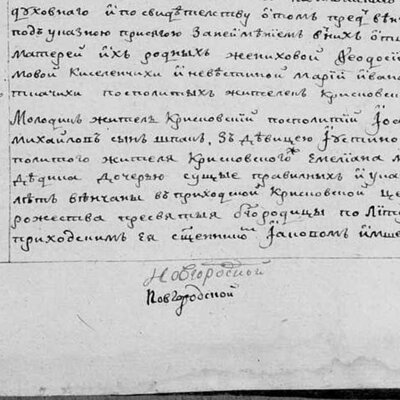 духовнаго и по свидѣтелству о томъ пред вѣн
подъ указною присягою за неимѣнїемъ в нихъ отц
матерей ихъ родныхъ жениховой Ѳеодосї
мовой Киселенчихи и невѣстиной Марїй Иван
ткачихи посполитыхъ жителекъ Крисковск
Молодикъ житель Крисковскїй посполитїй Їоа
Михайловъ сынъ шпакъ, зъ дѣвицею Їустино
политого жителя Крисковскогѡ Емелїана м
дѣдика дочерью сущые правилныхъ и ука
лѣтъ вѣнчаны въ приходской Крисковской це
рожества пресвятыя бгородицы по Лїт
приходскимъ ея сщенникѡмъ Їаковомъ Имше
Новгородской
Новгородской